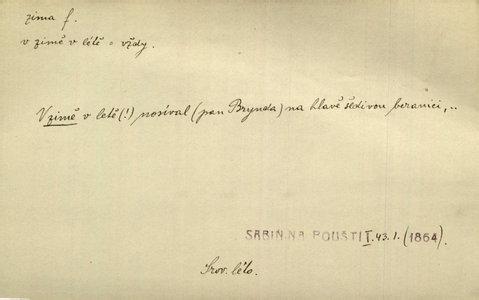 zima f.
v zimě v létě = vždy.
V zimě v letě (!) nosíval (pan Brynda) na hlavě šedivou beranici,..
SABIN.NA POUŠTI I.43.1. (1864).
Srov. léto.